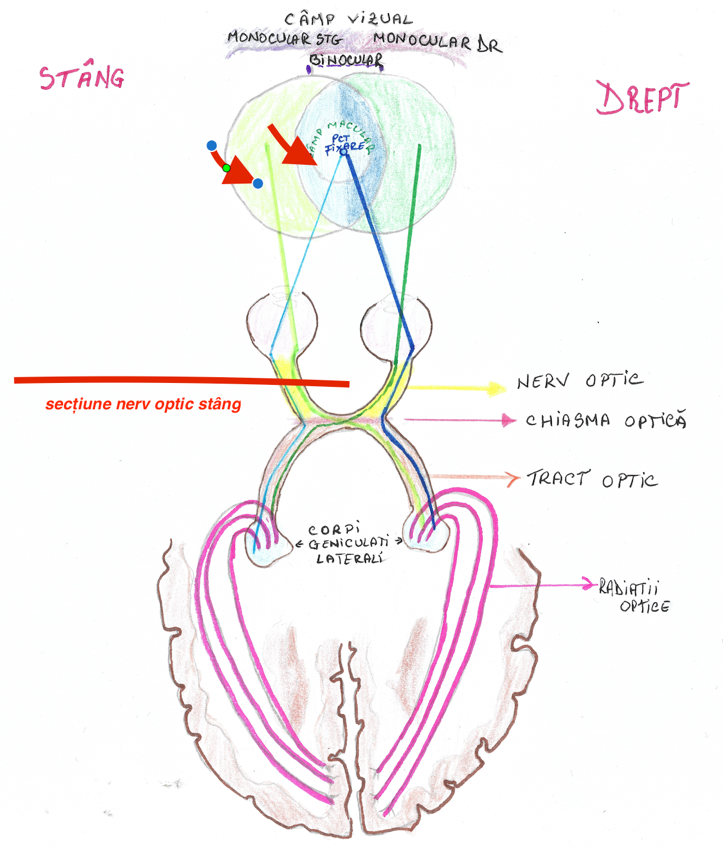 CÂMP VIZUAL
MONOCULAR STG MONOCULAR DR
BINOCULAR
STÂNG
DREPT
CÂMP MACULAR
PCT
FIXARE
NERV OPTIC
secțiune nerv optic stâng
CHIASMA OPTICĂ
TRACT OPTIC
CORPI
GENICULATI
LATERALI
RADIATII
OPTICE